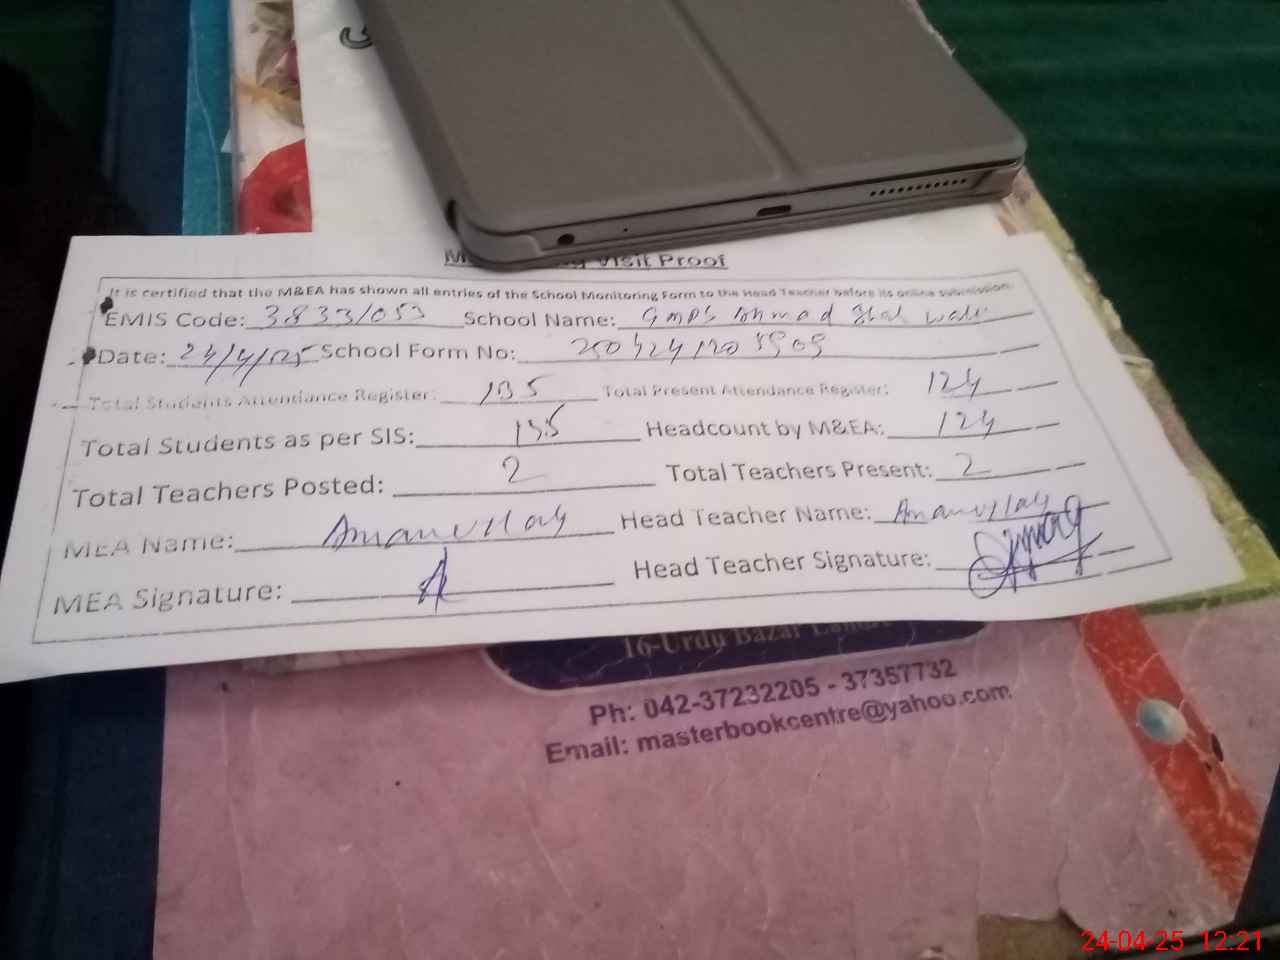 Visit Proof
It is certified that the M&EA has shown all entries of the School Monitoring Form to the Head Teacher before its online submission.
EMIS Code: 3833/053 School Name: GMPS Ahmad
Date: 24/4/025 School Form No:
Total Students Attendance Register: 135 Total Present Attendance Register: 124
Total Students as per SIS: 135 Headcount by M&EA: 124
Total Teachers Posted: 2 Total Teachers Present: 2
MEA Name: Amanullah Head Teacher Name: Amanullah
MEA Signature: Head Teacher Signature:
16-Urdu Bazar Lahore
Ph: 042-37232205 - 37357732
Email: masterbookcentre@yahoo.com
24-04-25 12:21